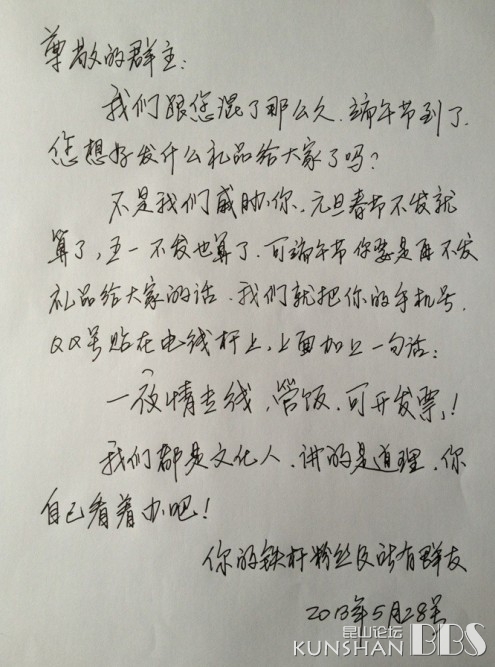 尊敬的群主：
我们跟您混了那么久、端午节到了.
您想好发什么礼品给大家了吗？
不是我们威胁你、元旦春节不发就
算了，五一不发也算了、可端午节你要是再不发
礼品给大家的话、我们就把你的手机号、
QQ号贴在电线杆上，上面加上一句话：
一夜情专线，管饭、可开发票！
我们都是文化人、讲的是道理、你
自己看着办吧！
你的铁杆粉丝及所有群友
2013年5月28号
昆山论坛
KUNSHAN BBS